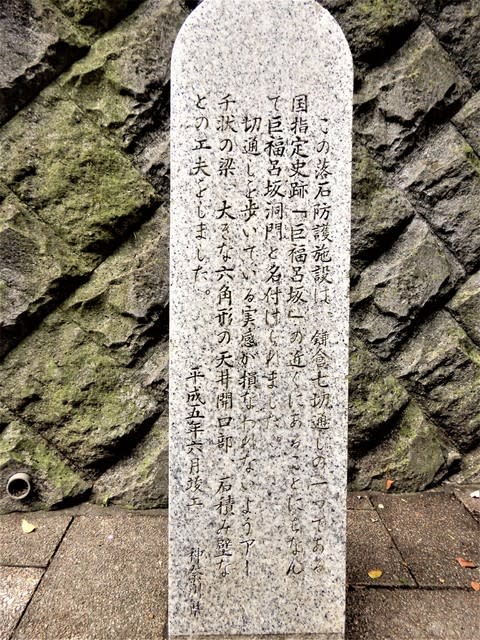 この落石防護施設は、鎌倉七切通しの一つである
国指定史跡「巨福呂坂」の近くにあることにちなん
で巨福呂坂洞門と名付けられました。
切通しを歩いている実感が損なわれないようアー
チ状の梁、大きな六角形の天井開口部、石積み壁な
どの工夫をしました。
平成五年六月竣工
神奈川県